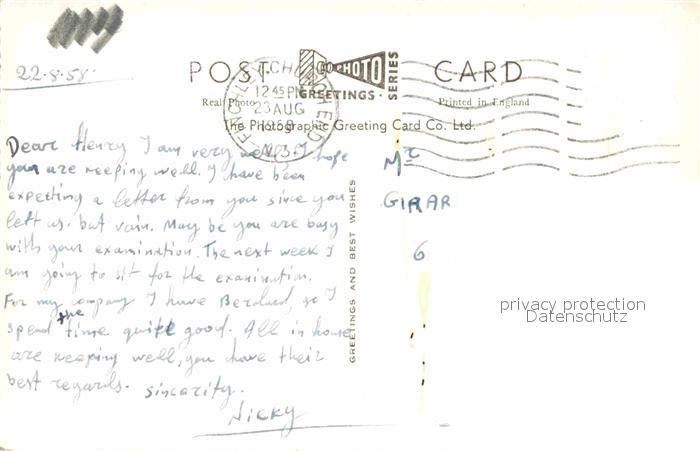 22-8-58.
POST CARD
PHOTO
GREETINGS
SERIES
Real Photo Printed in England
The Photographic Greeting Card Co. Ltd.
FINCHLEY CHURCH END
12 45 PM
23 AUG
1958
N.3.
Dear Henry I am very well. I hope
you are keeping well. I have been
expecting a letter from you since you
left us. but vain. May be you are busy
with your examination. The next week I
am going to sit for the examination.
For my company I have so I
spend the time quite good. All in house
are keeping well, you have their
best regards. sincarity.
Nicky
GREETINGS AND BEST WISHES
Mr
GIRAR
6
privacy protection
Datenschutz